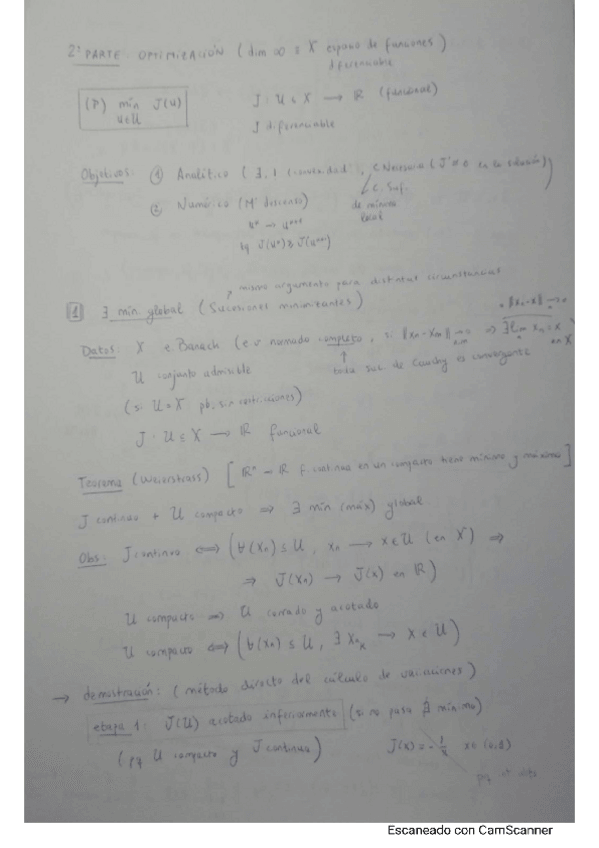 2ª PARTE: OPTIMIZACIÓN (dim ∞ ≡ X espacio de funciones)
diferenciable
(P) min J(u)
u∈U
J: U ⊂ X → ℝ (funcional)
J diferenciable
Objetivos: ① Analítico (∃, ! (convexidad), C. Necesaria (J'=0 en la solución)
C. Suf.
② Numérico (M. descenso) de mínimo local
uⁿ → uⁿ⁺¹
tq J(uⁿ) ≥ J(uⁿ⁺¹)
mismo argumento para distintas circunstancias
1 ∃ min. global (Sucesiones minimizantes)
Datos: X e. Banach (e.v. normado completo, si ‖xn-xm‖ → 0 ⇒ ∃ lim xn = x en X
‖xn-x‖ → 0
toda suc. de Cauchy es convergente
U conjunto admisible
(si U = X pb. sin restricciones)
J: U ⊆ X → ℝ funcional
Teorema (Weierstrass) [ℝⁿ → ℝ f continua en un compacto tiene mínimo y máximo]
J continuo + U compacto ⇒ ∃ min (máx) global
Obs: J continuo ⇔ (∀(xn) ⊆ U, xn → x ∈ U (en X) ⇒
⇒ J(xn) → J(x) en ℝ)
U compacto ⇒ U cerrado y acotado
U compacto ⇔ (∀(xn) ⊆ U, ∃ xnk → x ∈ U)
→ demostración: (método directo del cálculo de variaciones)
etapa 1: J(U) acotado inferiormente (si no pasa ∄ mínimo)
(pq U compacto y J continuo) J(x) = -1/x x∈(0,1)
pq
Escaneado con CamScanner